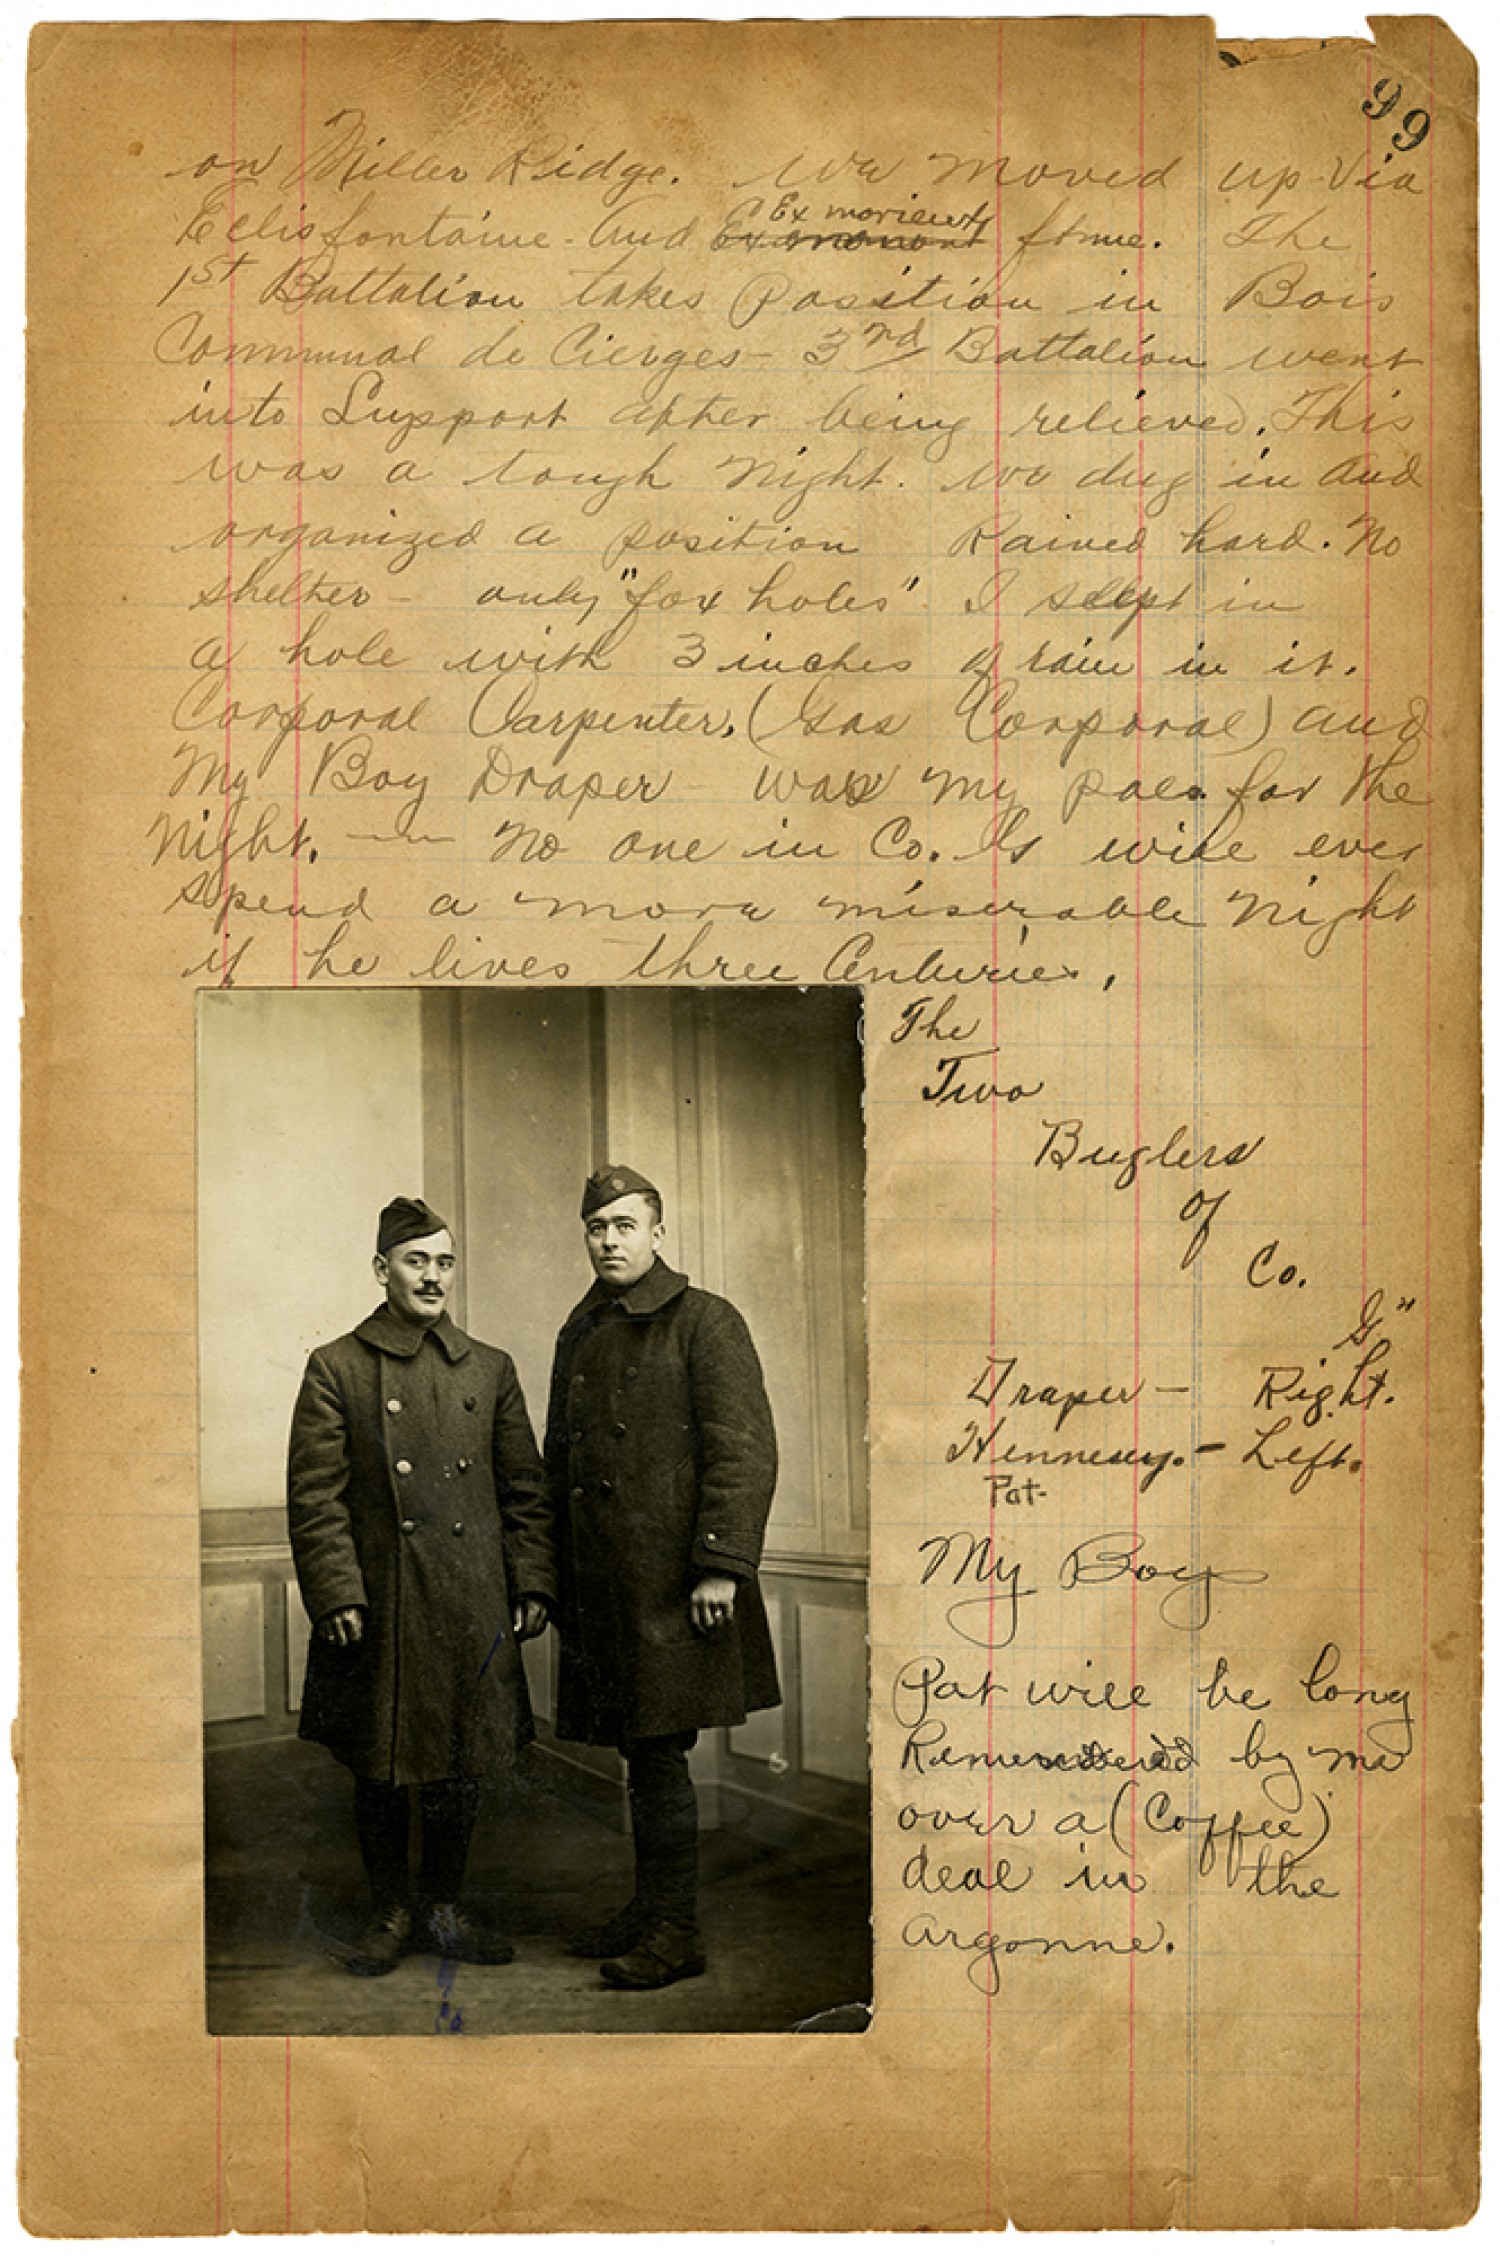 99
on Miller Ridge. We moved up via
Eclisfontaine - and Exmorieux
ftme. The
1st Battalion takes position in Bois
Communal de Cierges - 3rd Battalion went
into Support after being relieved. This
was a tough night. We dug in and
organized a position Rained hard. No
shelter - only "fox holes". I sleept in
a hole with 3 inches of rain in it.
Corporal Carpenter, (Gas Corporal) and
My Boy Draper - was my pals for the
night. — No one in Co. G will ever
spend a more miserable night
if he lives three Centuries.
The
Two
Buglers
of
Co.
G"
Draper - Right.
Hennesey. - Left.
Pat-
My Boy
Pat will be long
Remembered by me
over a (Coffee)
deal in the
Argonne.